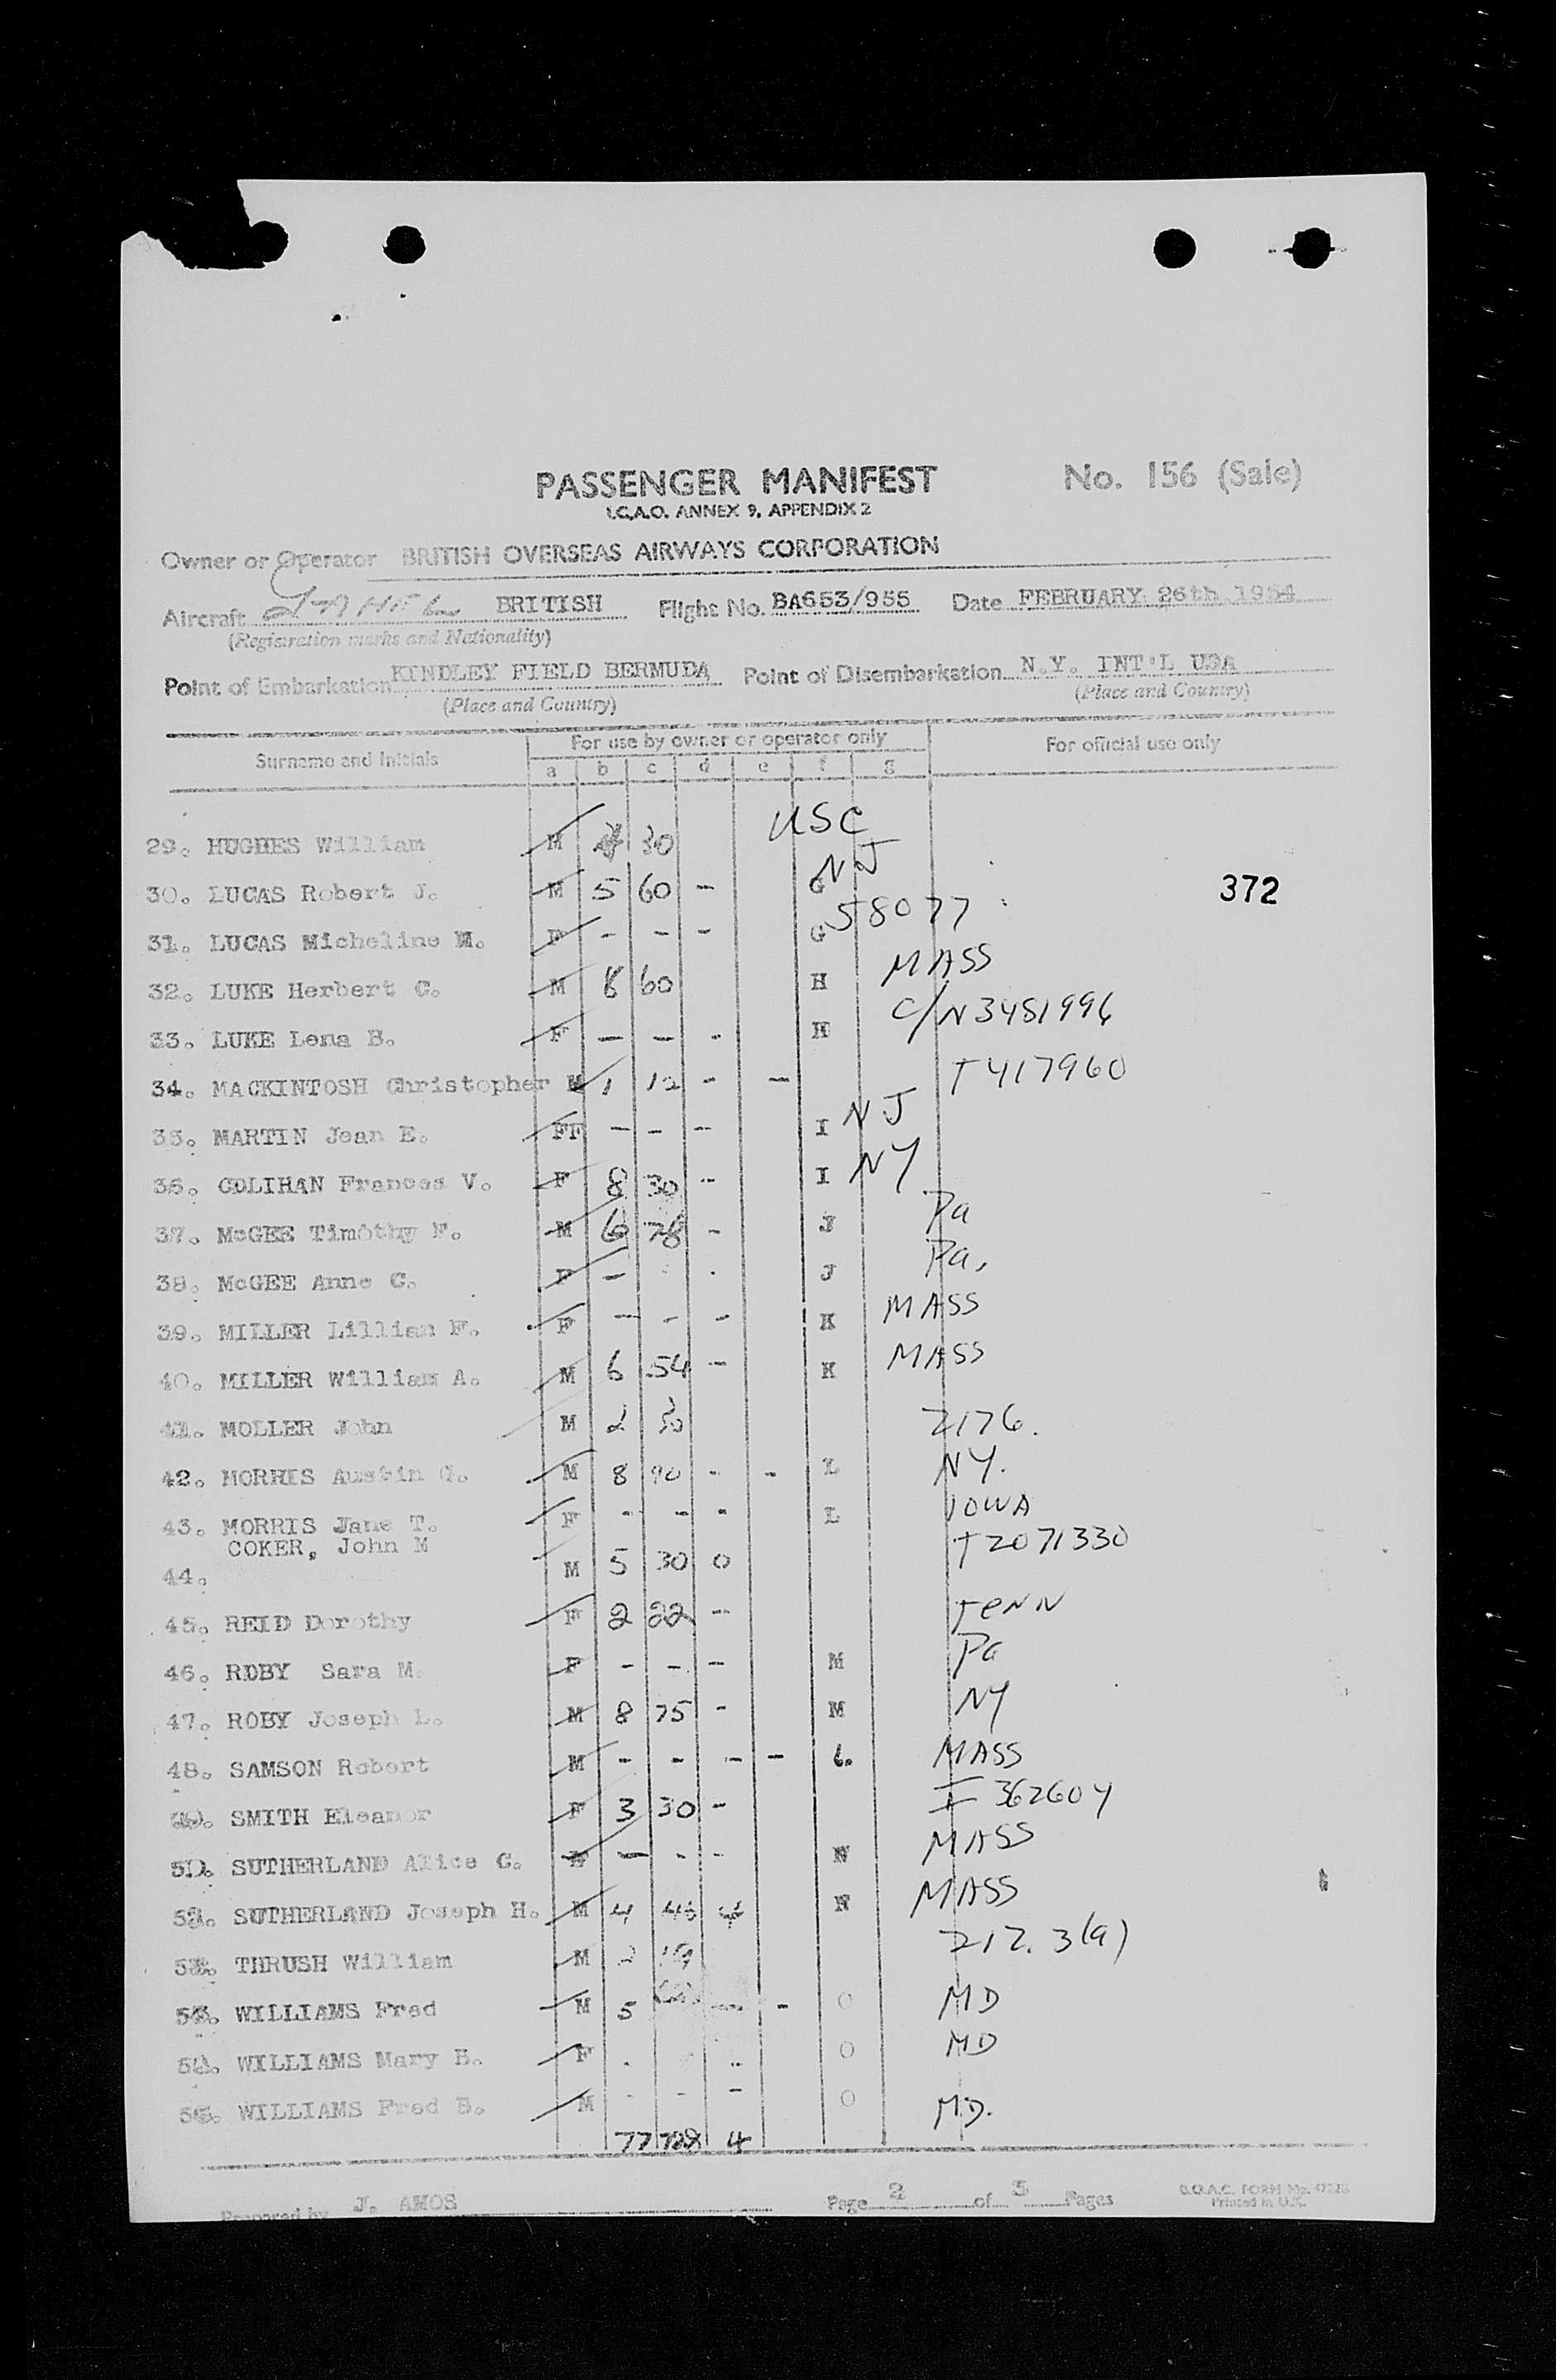 PASSENGER MANIFEST No. 156 (Sale)
I.C.A.O. ANNEX 9, APPENDIX 2
Owner or Operator BRITISH OVERSEAS AIRWAYS CORPORATION
Aircraft BRITISH Flight No. BA653/955 Date FEBRUARY 26th 1954
(Registration marks and Nationality)
Point of Embarkation KINDLEY FIELD BERMUDA Point of Disembarkation N.Y. INT'L USA
(Place and Country) (Place and Country)
Surname and Initials For use by owner or operator only For official use only
a b c d e f g
29. HUGHES William M 30 USC
30. LUCAS Robert J. M 5 60 - G NJ
372
31. LUCAS Micheline M. F - - - G 58077
32. LUKE Herbert C. M 8 60 H MASS
33. LUKE Lena B. F - - - H C/N 3481996
34. MACKINTOSH Christopher M 1 12 - - T417960
35. MARTIN Jean E. FF - - - I NJ
36. COLIHAN Frances V. F 8 30 - I NY
37. McGEE Timothy F. M 6 78 - J Pa
38. McGEE Anne C. F - J Pa,
39. MILLER Lillian F. F - - - K MASS
40. MILLER William A. M 6 54 - K MASS
41. MOLLER John M 2 30 2176.
42. MORRIS Austin G. M 8 90 - - L NY.
43. MORRIS Jane T. F - - - L IOWA
COKER, John M
44. M 5 30 0 T2071330
45. REID Dorothy F 2 22 - TENN
46. ROBY Sara M. F - - - M Pa
47. ROBY Joseph L. M 8 75 - M NY
48. SAMSON Robert M - - - - MASS
SMITH Eleanor F 3 30 - I 362604
SUTHERLAND Alice C. F - - - N MASS
SUTHERLAND Joseph H. M 4 46 4 N MASS
THRUSH William M 2 19 212.3(a)
WILLIAMS Fred M 5 - - O MD
WILLIAMS Mary B. F O MD
WILLIAMS Fred B. M - - - O MD.
77 728 4
Prepared by J. AMOS Page 2 of 3 Pages
B.O.A.C. FORM No.
Printed in U.K.